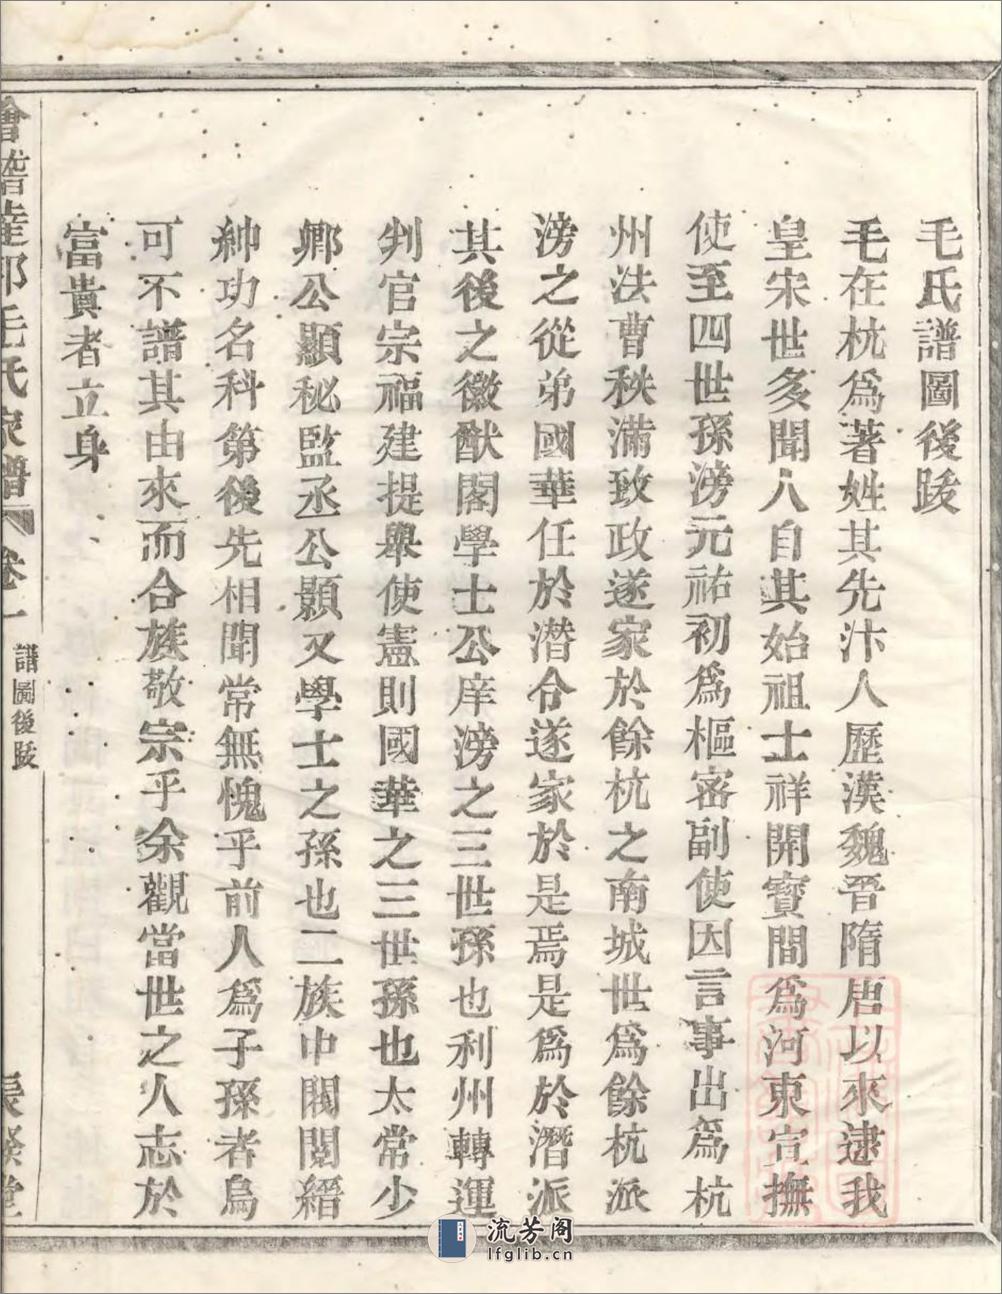 毛氏譜圖後跋
毛在杭爲著姓其先汴人歷漢魏晉隋唐以來逮我
皇宋世多聞人自其始祖士祥開寶間爲河東宣撫
使至四世孫滂元祐初爲樞密副使因言事出爲杭
州法曹秩滿致政遂家於餘杭之南城世爲餘杭派
滂之從弟國華任於潛令遂家於是焉是爲於潛派
其後之徽猷閣學士公庠滂之三世孫也利州轉運
判官宗福建提舉使憲則國華之三世孫也太常少
卿公顯秘監丞公顥又學士之孫也二族中閥閱縉
紳功名科第後先相聞常無愧乎前人爲子孫者烏
可不譜其由來而合族敬宗乎余觀當世之人志於
富貴者立身
會稽達郭毛氏家譜 卷一 譜圖後跋 堂
流芳阁
lfglib.cn